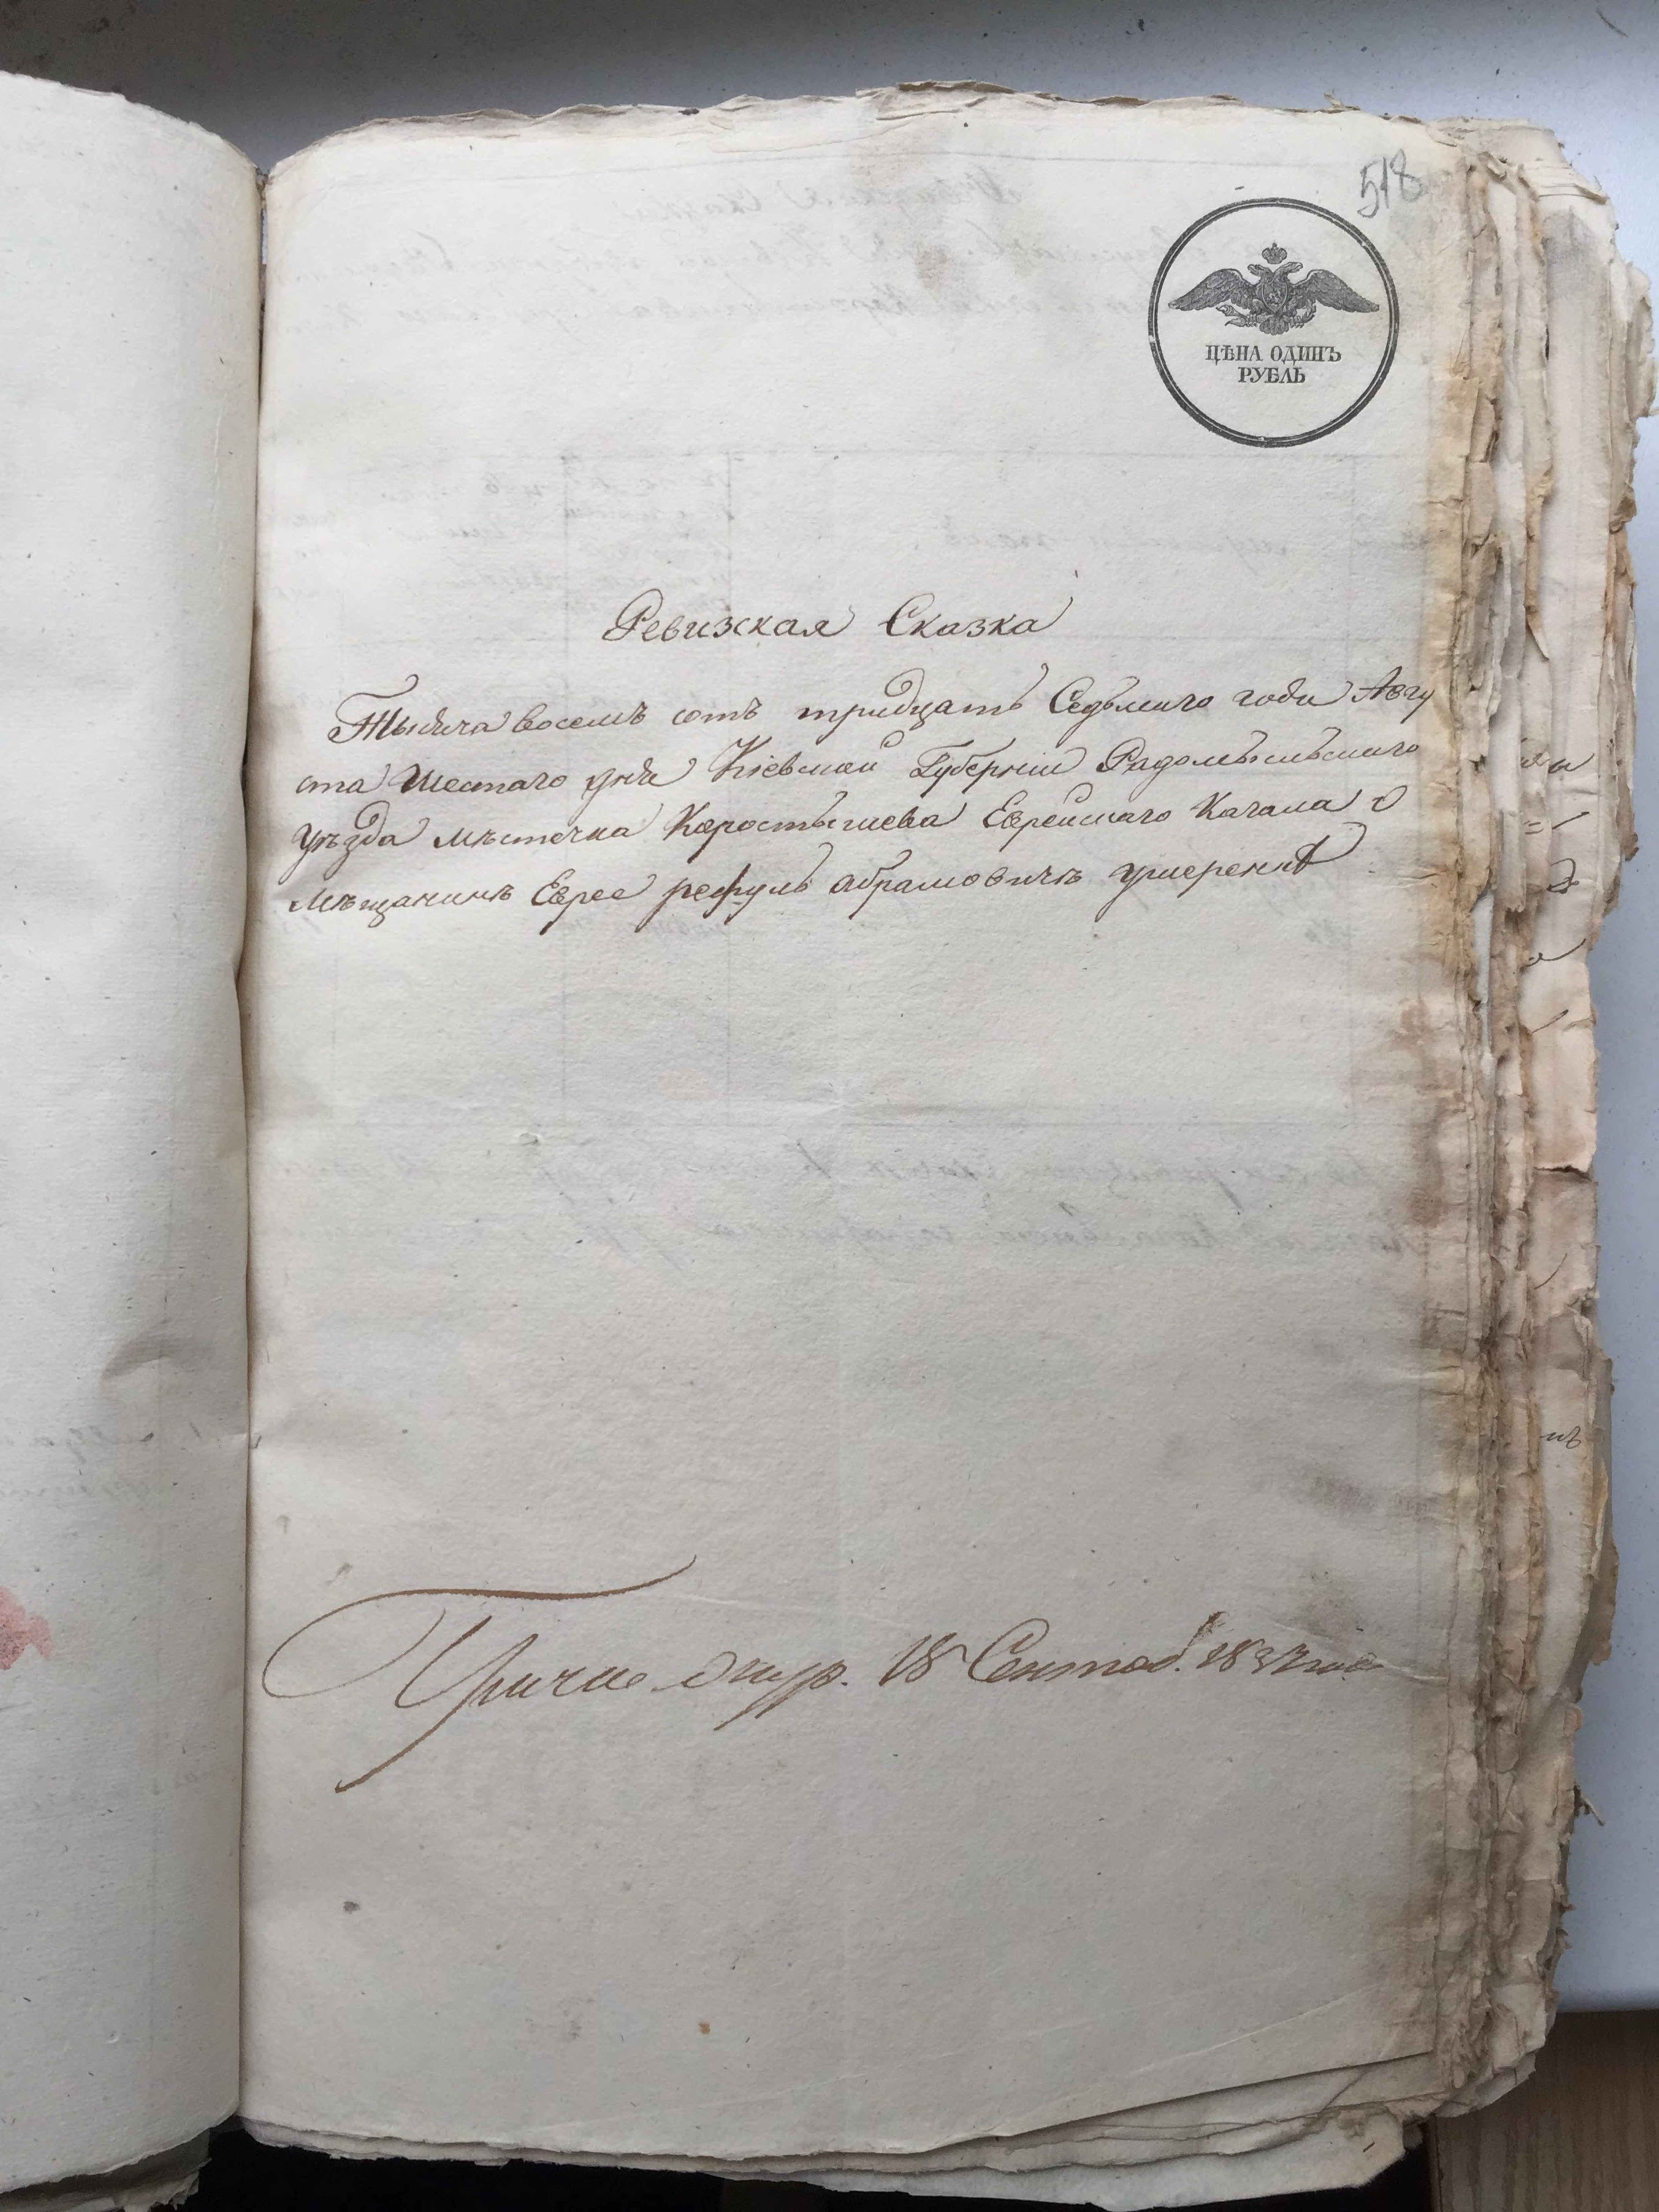 518
ЦѢНА ОДИНЪ
РУБЛЬ
Ревизская Сказка
Тысяча восемъ сотъ тридцать Седьмаго года Авгу
ста Шестаго дня Кіевской Губерніи Радомысльскаго
уѣзда мѣстечка Коростышева Еврейскаго Кагала о
мѣщанинѣ Еврее абрамовичѣ
18 Сентяб. 1837 года